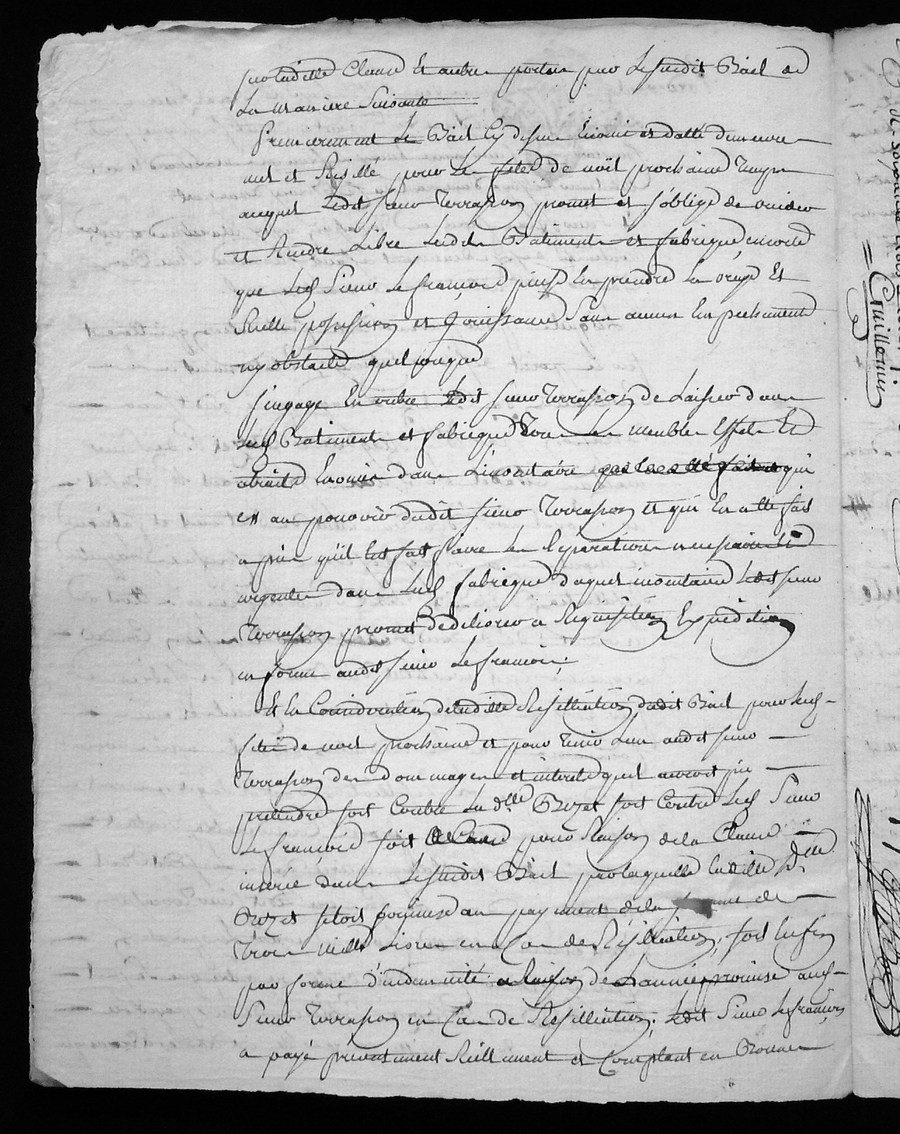 par laditte Clause Et autre portée par Le susdit Bail de
La maniere Suivante
Premierement Le Bail Cy dessus Enoncé et datté demeure
nul et Resillé pour Les fetes de noël prochaine tems
auquel Ledit sieur Terrasson promet et s'oblige de vuider
et Rendre Libre Lesdits Batiments et fabrique en sorte
que Led. Sieur Lefrançois puisse En prendre La vraye Et
Réelle possession et Jouissance Sans aucun Empechement
ny obstacle quelconque
s'engage En outre Ledit sieur Terrasson de Laisser dans
Lesd. Batiments et fabrique Tous Les meubles Effets Et
Enoncé dans L'inventaire qui
est au pouvoir dudit sieur Terrasson et qui En a été fait
a fin qu'il fasse faire Les Reparations necessaires Et
urgentes dans Lad. fabrique duquel inventaire Ledit sieur
Terrasson promet de délivrer a Requisition Expedition
en forme audit sieur Lefrançois.
Et En Consideration de laditte Resilliation dudit Bail pour Lesd.
fetes de noel prochaine et pour tenir Lieu audit sieur
Terrasson des dommages et interets qu'il auroit pu
pretendre soit Contre La dlle Buzet soit Contre Led. Sieur
Lefrançois soit pour Raison de la Clause
inserée dans Le susdit Bail par laquelle laditte Dlle
Buzet s'étoit soumise au payement de la somme de
Trois mille Livres en Cas de Resilliation, soit Enfin
par forme d'indemnité a Raison de promise aud.
Sieur Terrasson en Cas de Resilliation. Ledit Sieur Lefrançois
a payé presentement Réellement et Comptant en Bonnes
Guillemin